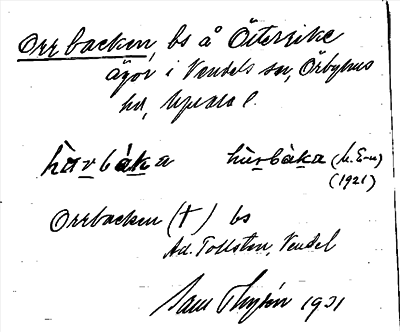 Orrbacken, bs å Östersike
ägor i Vendels sn, Örbyhus
hd, Upsala l.
hàrbáka hùrbàka (M. E-n)
(1921)
Orrbacken (†) bs
Ad. Tollsten, Vendel
1931